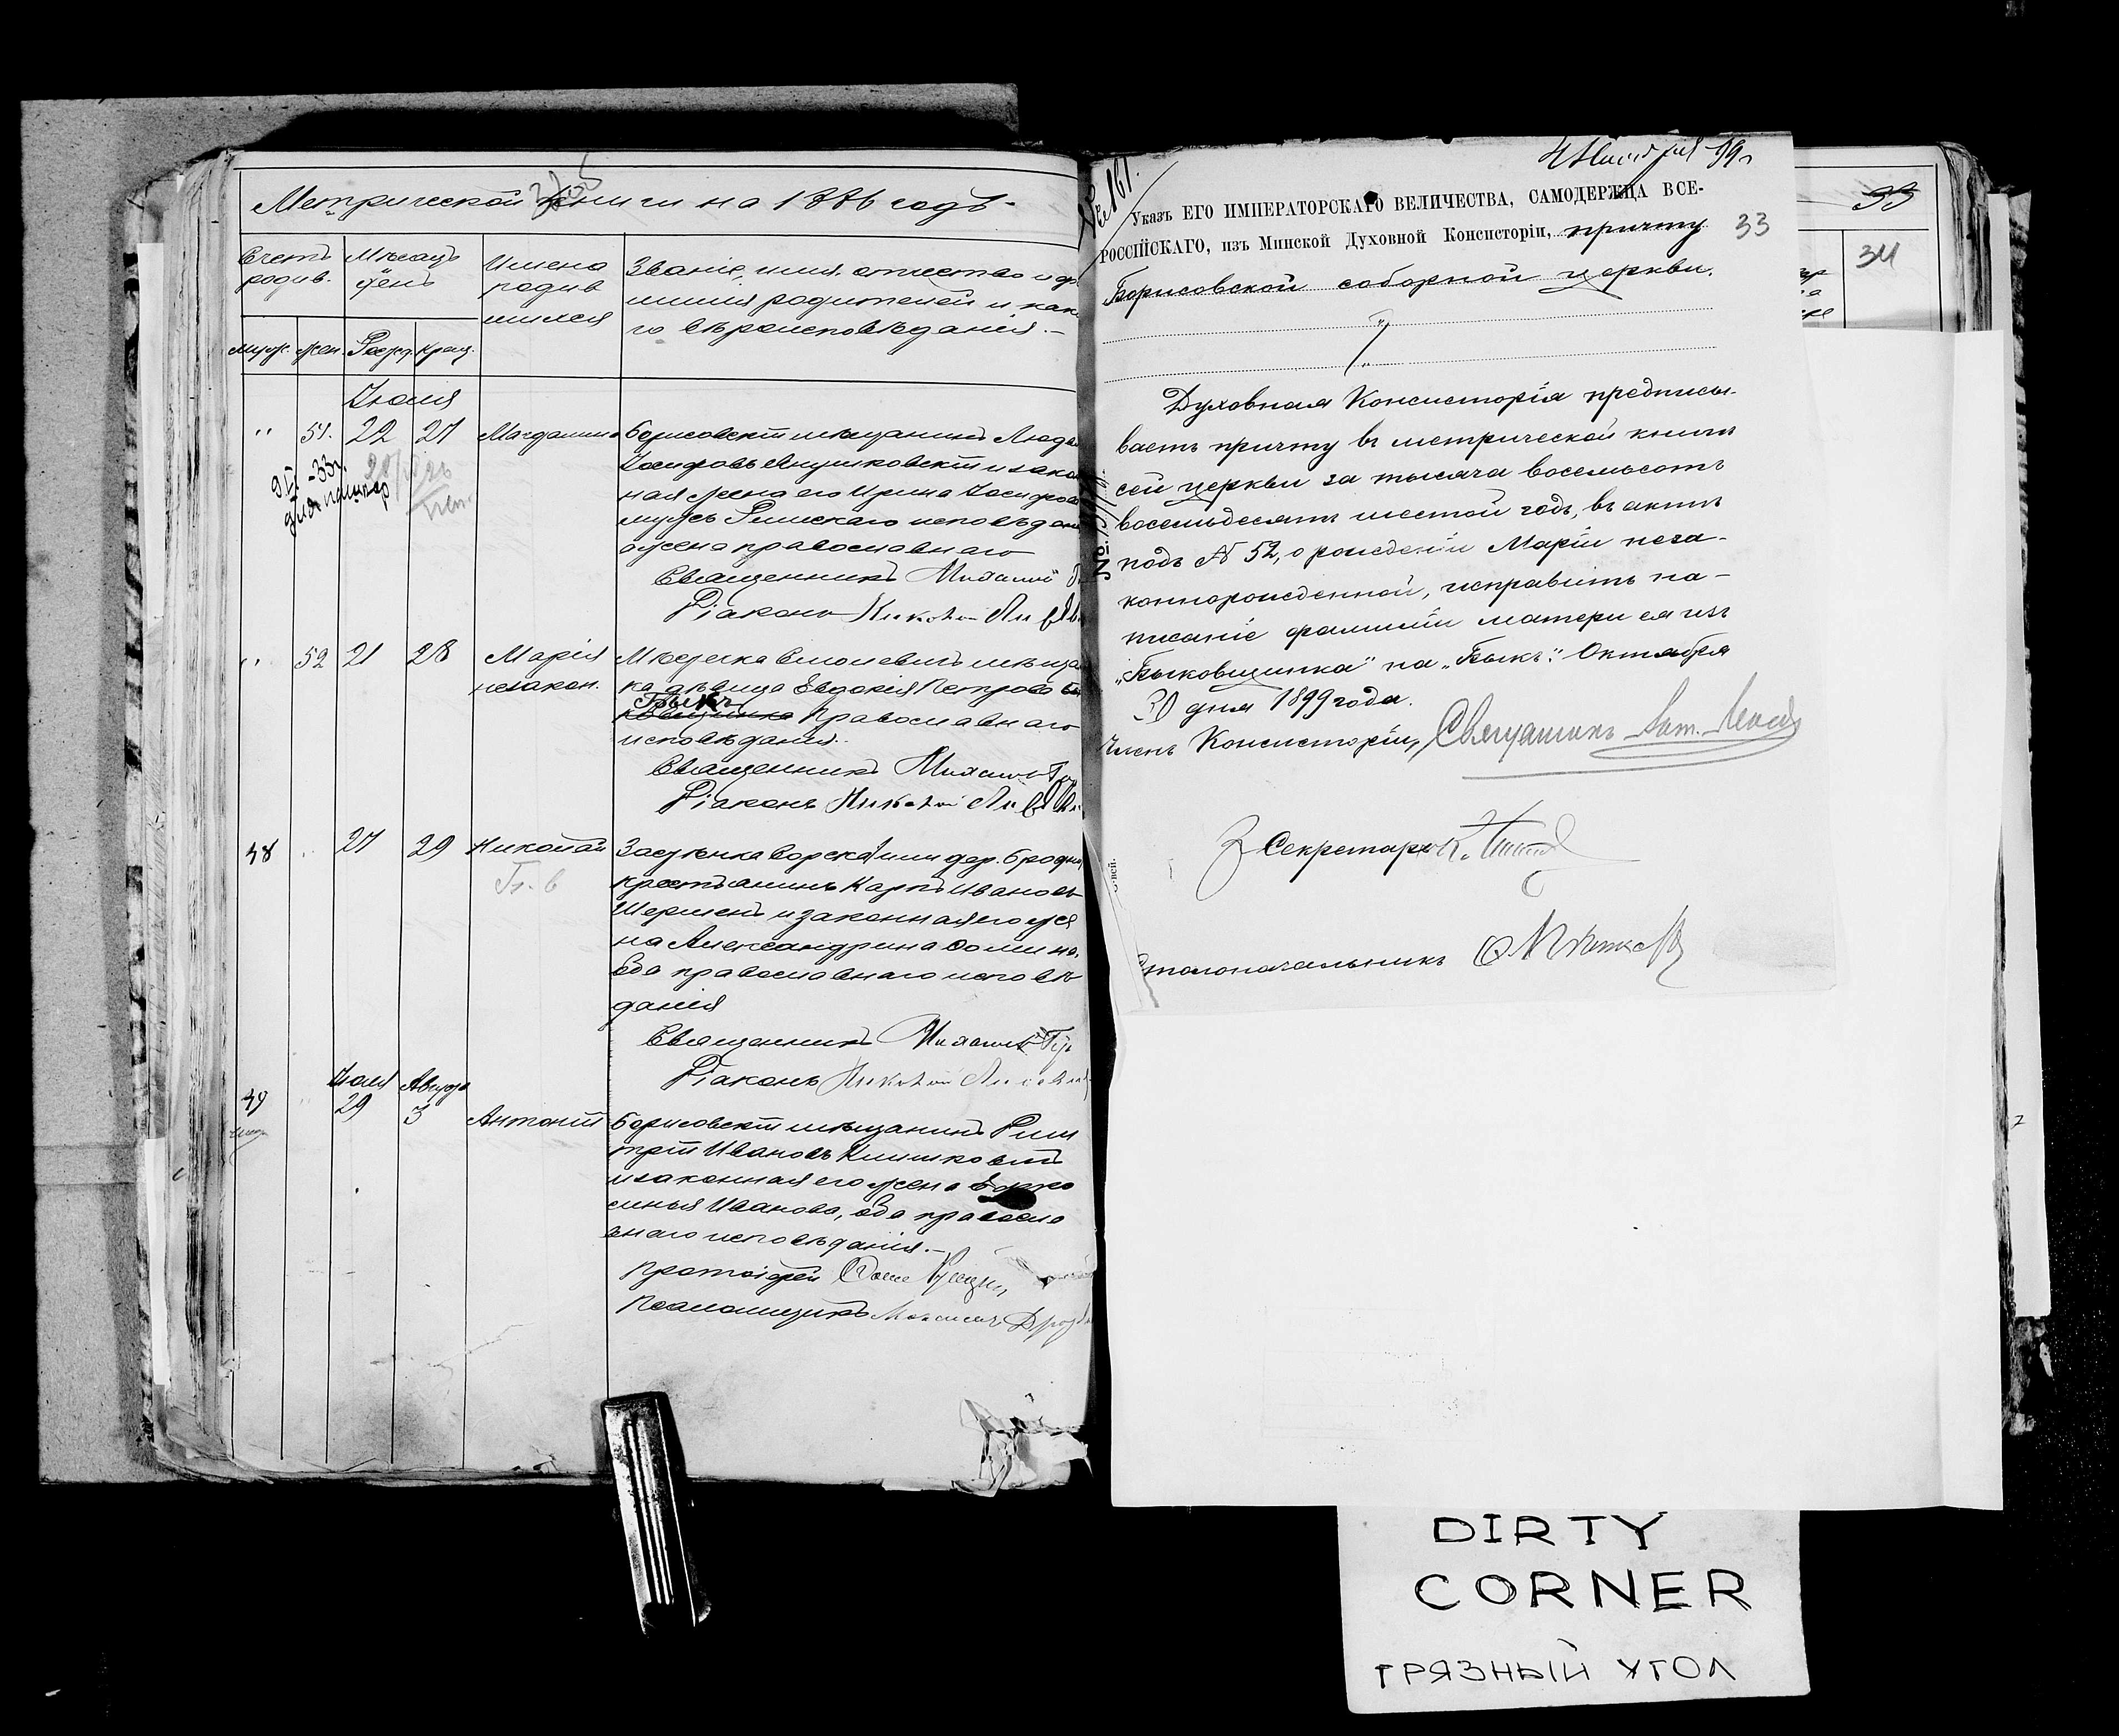 Метрической книги на 1886 годъ.
Счетъ родив.
Мѣсяцъ день
Имена родив
шихся
Званіе, имя, отчество и фа
милія родителей и как
го вѣроисповѣданія.
муж. жен. Рожд. Крещ.
Іюля
" 51. 22 27 Магдалина Борисовскій мѣщанинъ
Іосифовъ Янушковскій и закон
ная жена его Ирина Іосифова
мужъ Римскаго исповѣдан
а жена православнаго
Священникъ Михаилъ
Діаконъ Николай
" 52 21 28 Марія
незакон.
Мѣстечка Смолевичъ мѣща
ка дѣвица Евдокія Петрова
Быкъ
ковщинка Православнаго
исповѣданія.
Священникъ Михаилъ
Діаконъ Николай
48 27 29 Николай
дер. Бродни
крестьянинъ Карпъ Ивановъ
и законная его же
на Александрина
оба православнаго исповѣ
данія
Священникъ Михаилъ
Діаконъ Николай
Іюля Августа
49 29 3 Антоній Борисовскій мѣщанинъ Дми
трій Ивановъ Климковичъ
и законная его жена
Иванова, оба правосла
внаго исповѣданія.
Протоіерей
Псаломщикъ Максимъ
№ 161.
99
Указъ ЕГО ИМПЕРАТОРСКАГО ВЕЛИЧЕСТВА, САМОДЕРЖЦА ВСЕ-
РОССІЙСКАГО, изъ Минской Духовной Консисторіи, причту
33
Борисовской соборной церкви.
Духовная Консисторія предписы-
ваетъ причту въ метрической книгѣ
сей церкви за тысяча восемьсотъ
восемьдесятъ шестой годъ, въ актѣ
подъ № 52, о рожденіи Маріи неза-
коннорожденной, исправить на-
писаніе фамиліи матери ея изъ
„Быковщинка" на „Быкъ". Октября
30 дня 1899 года.
Членъ Консисторіи, Священникъ
Секретарь
Столоначальникъ
33
34
DIRTY
CORNER
ГРЯЗНЫЙ УГОЛ